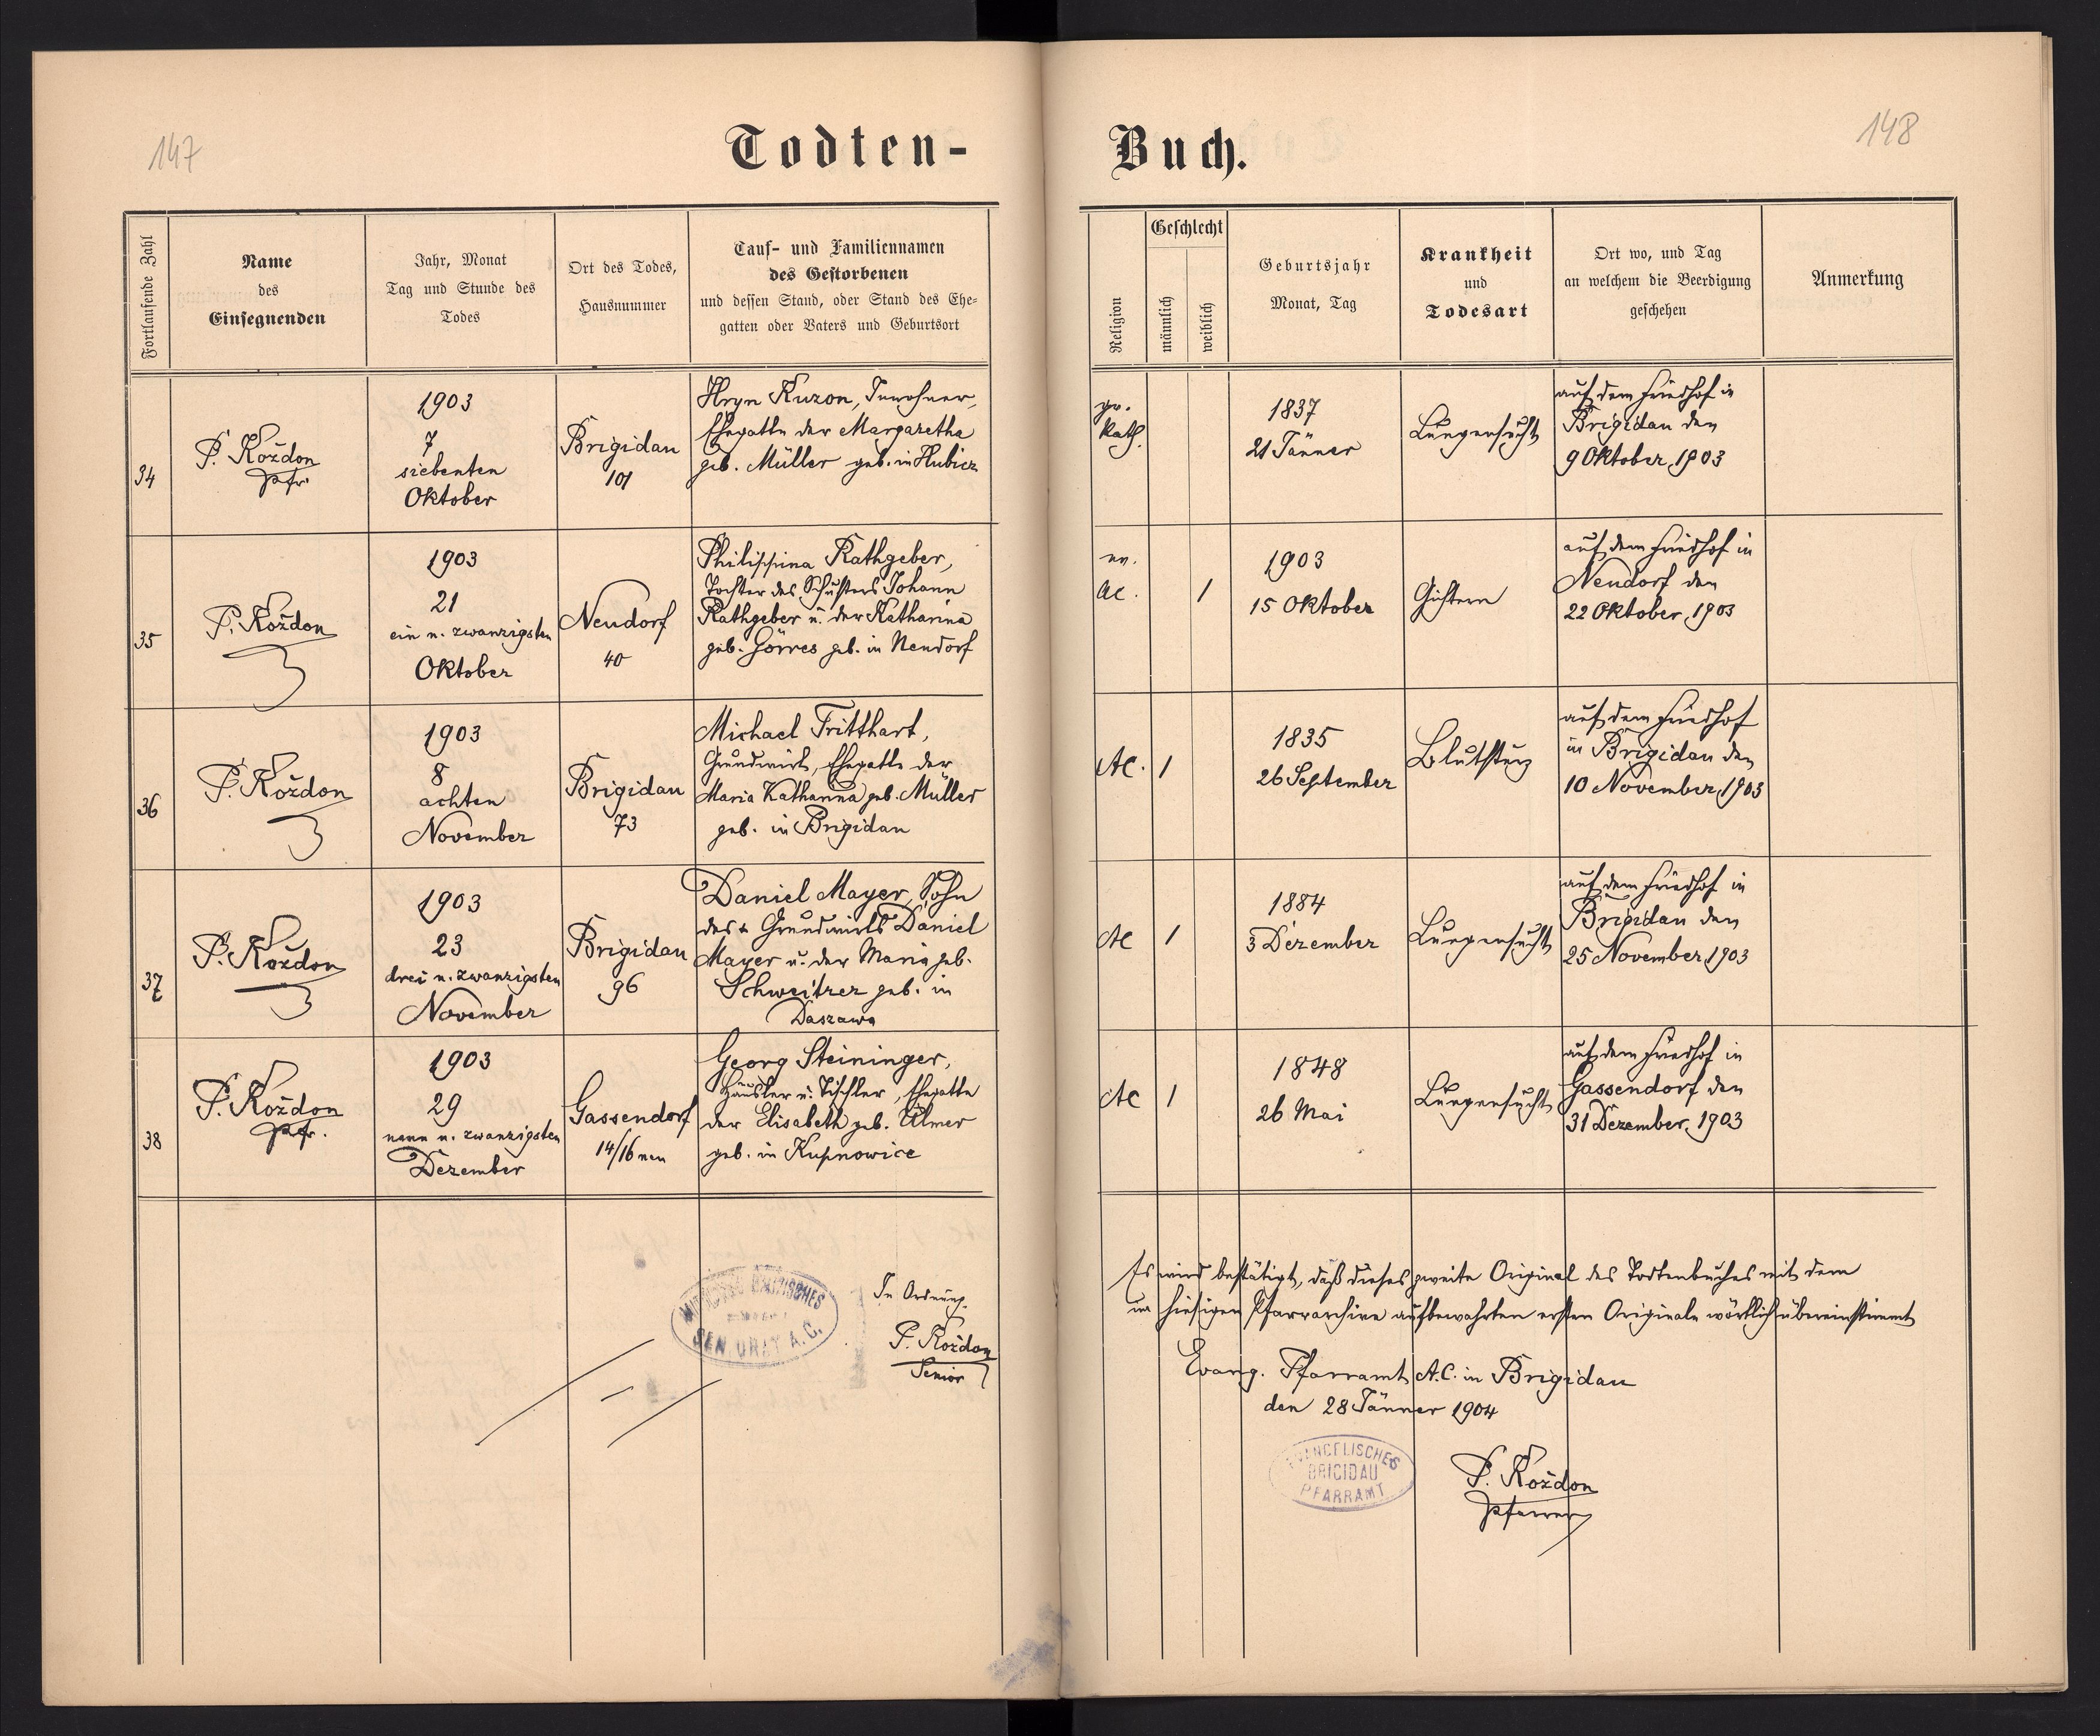 147
Todten-
Fortlaufende Zahl
Name
des
Einsegnenden
Jahr, Monat
Tag und Stunde des
Todes
Ort des Todes,
Hausnummer
Tauf- und Familiennamen
des Gestorbenen
und dessen Stand, oder Stand des Ehe-
gatten oder Vaters und Geburtsort
34
P. Koždon
Pfr.
1903
7
siebenten
Oktober
Brigidau
101
Hryn Kuzon, Inwohner,
Ehegatte der Margaretha
geb. Müller geb. in Hubicz
35
P. Koždon
1903
21
ein u. zwanzigsten
Oktober
Neudorf
40
Philippina Rathgeber,
Tochter des Schusters Johann
Rathgeber u. der Katharina
geb. Görres geb. in Neudorf
36
P. Koždon
1903
8
achten
November
Brigidau
73
Michael Tritthart,
Grundwirt, Ehegatte der
Maria Katharina geb. Müller
geb. in Brigidau
37
P. Koždon
1903
23
drei u. zwanzigsten
November
Brigidau
96
Daniel Mayer, Sohn
des + Grundwirts Daniel
Mayer u. der Maria geb.
Schweitzer geb. in
Daszawa
38
P. Koždon
Pfr.
1903
29
neun u. zwanzigsten
Dezember
Gassendorf
14/16 neu
Georg Steininger,
Häusler u. Tischler, Ehegatte
der Elisabeth geb. Ulmer
geb. in Kupnowice
SENIORAT A.C.
In Ordnung.
P. Koždon
Senior
148
Buch.
Religion
Geschlecht
männlich
weiblich
Geburtsjahr
Monat, Tag
Krankheit
und
Todesart
Ort wo, und Tag
an welchem die Beerdigung
geschehen
Anmerkung
gr.
kath.
1837
21 Jänner
Lungensucht
auf dem Friedhof in
Brigidau den
9 Oktober, 1903
ev.
AC.
1
1903
15 Oktober
Gichtern
auf dem Friedhof in
Neudorf den
22 Oktober, 1903
AC.
1
1835
26 September
Blutsturz
auf dem Friedhof
in Brigidau den
10 November, 1903
AC
1
1884
3 Dezember
Lungensucht
auf dem Friedhof in
Brigidau den
25 November, 1903
AC
1
1848
26 Mai
Lungensucht
auf dem Friedhof in
Gassendorf den
31 Dezember, 1903
Es wird bestätigt, daß dieses zweite Original des Todtenbuches mit dem
im hiesigen Pfarrarchive aufbewahrten ersten Originale wörtlich übereinstimmt
Evang. Pfarramt A.C. in Brigidau
den 28 Jänner 1904
EVANGELISCHES
BRIGIDAU
PFARRAMT
P. Koždon
Pfarrer